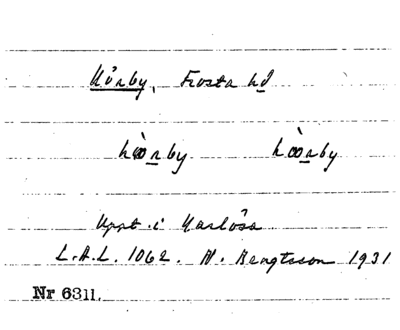 Hörby, Frosta hd
hꝏrby hꝏrby
Uppt. i Harlösa
L.A.L. 1062. N. Bengtsson 1931
Nr 6311.